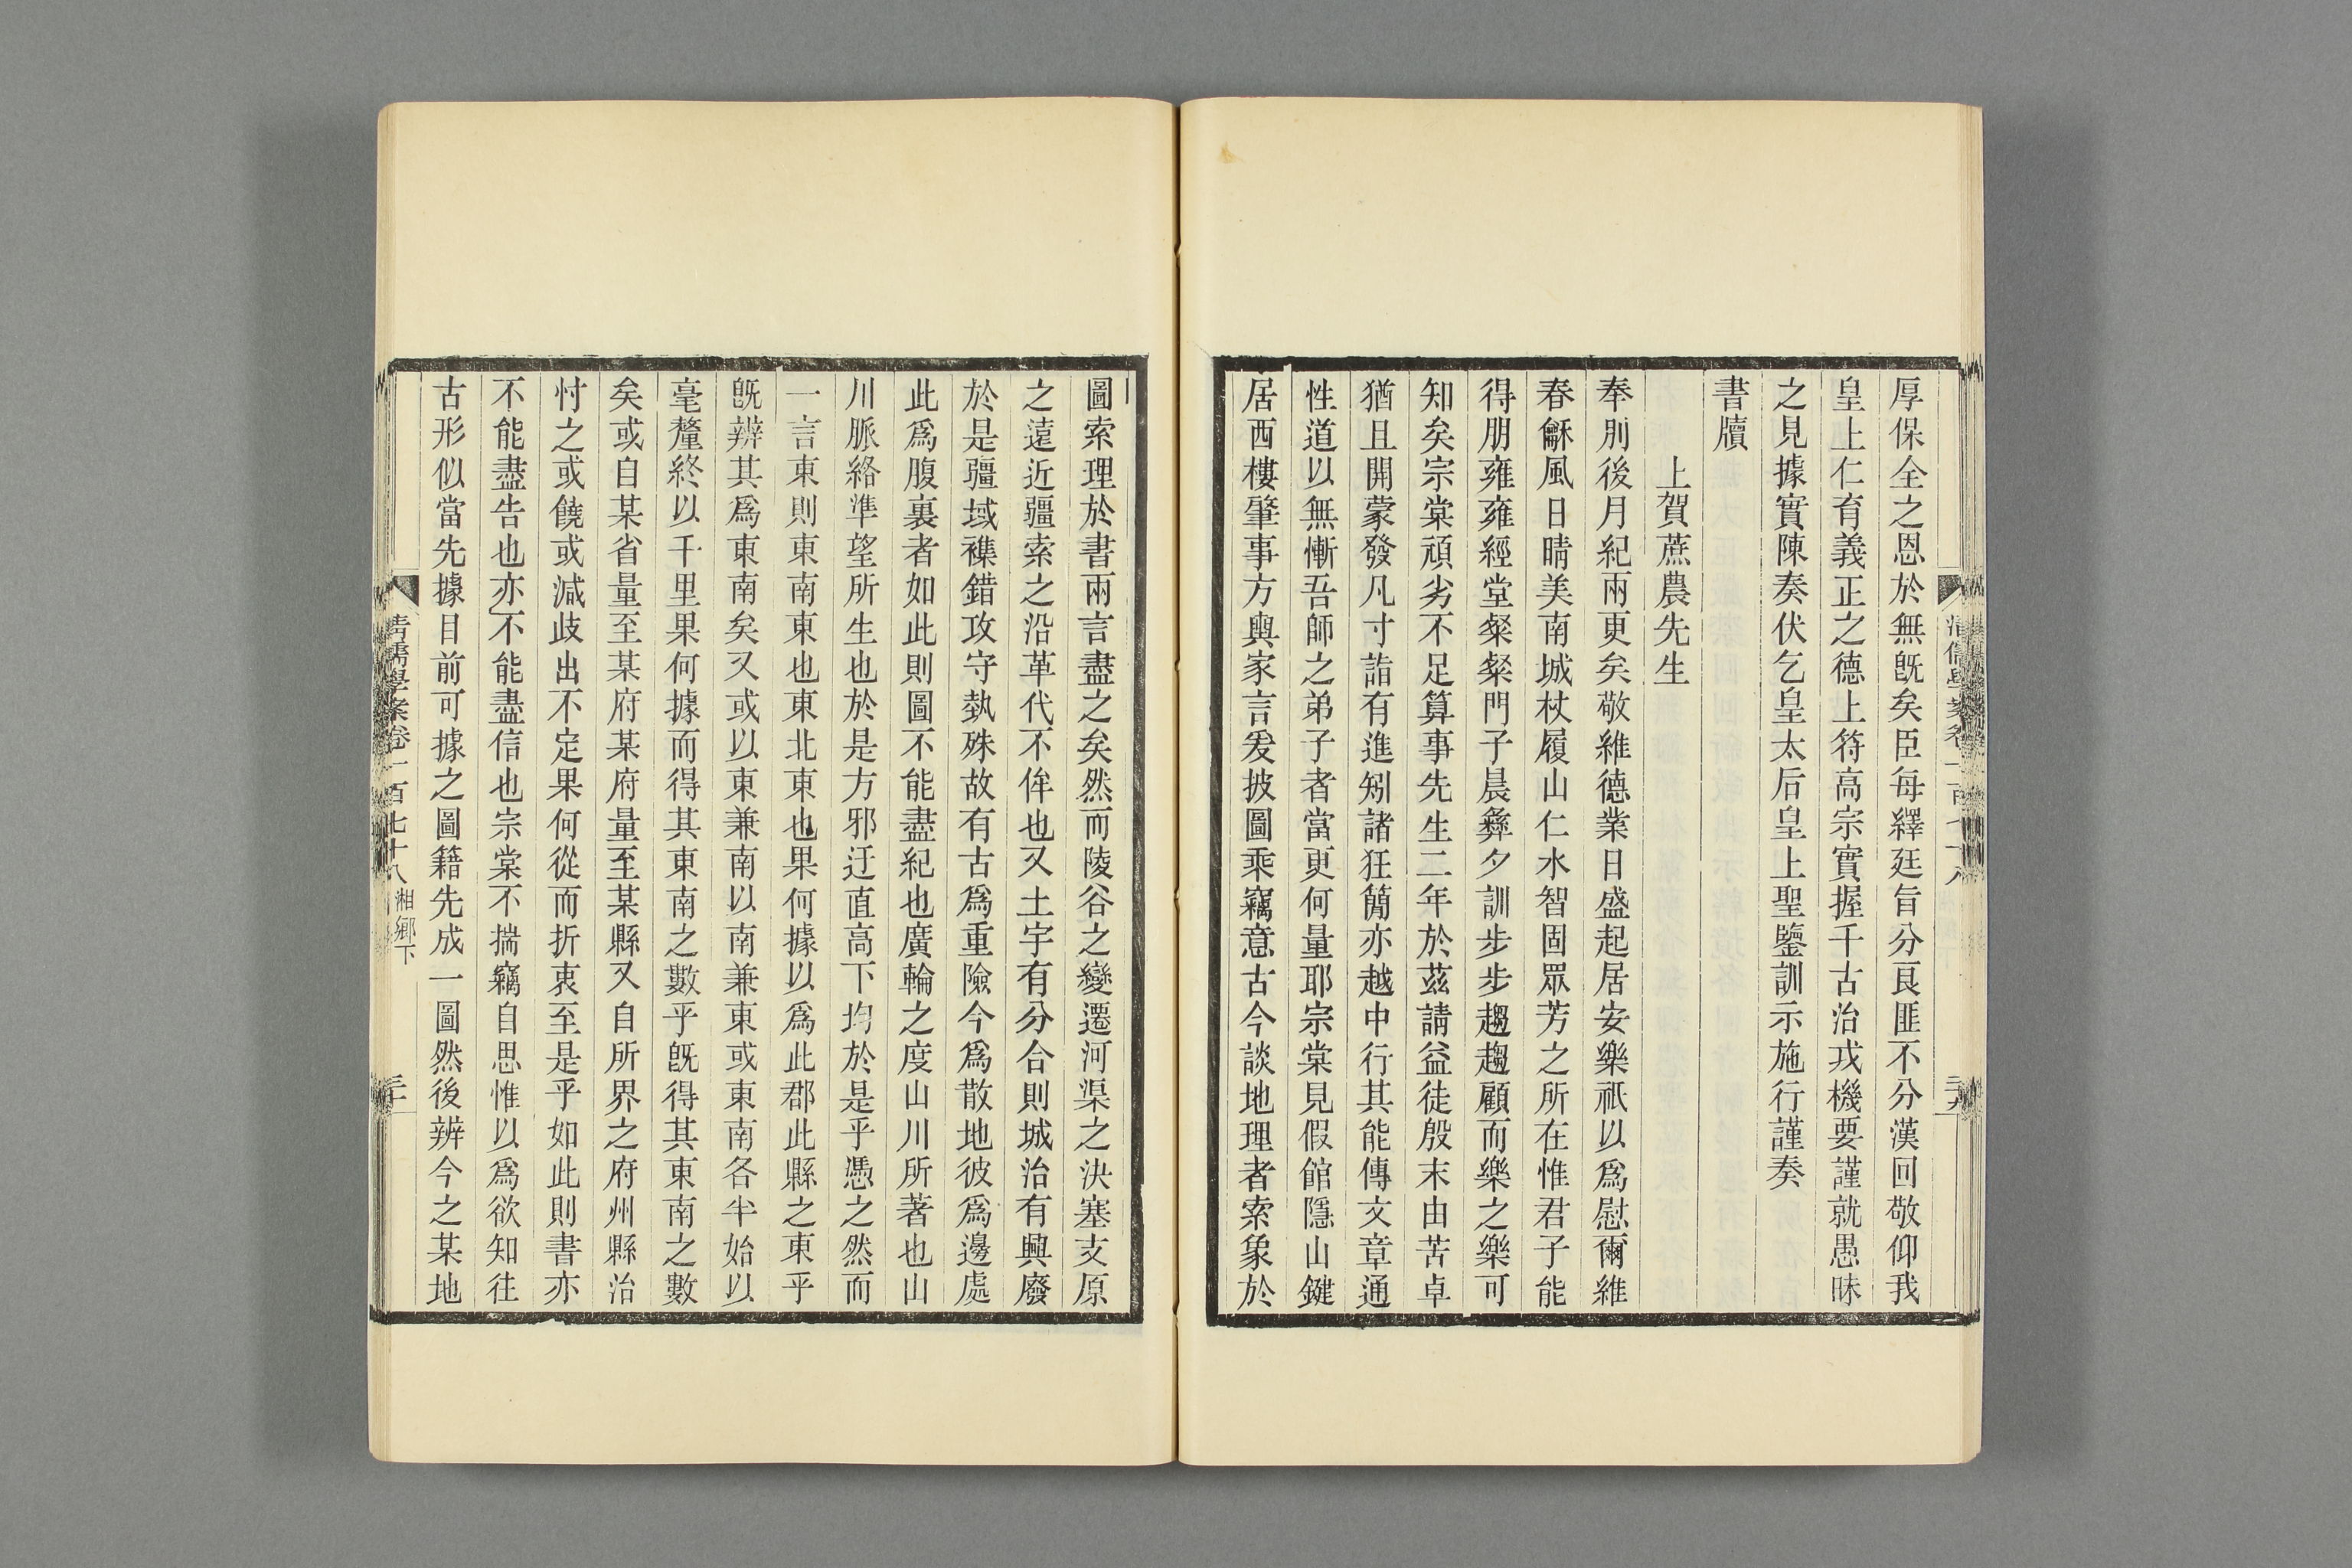 厚保全之恩於無旣矣臣每繹廷旨分良匪不分漢回敬仰我
皇上仁育義正之德上符高宗實握千古治戎機要謹就愚昧
之見據實陳奏伏乞皇太后皇上聖鑒訓示施行謹奏
書牘
上賀蔗農先生
奉別後月紀兩更矣敬維德業日盛起居安樂祇以爲慰爾維
春龢風日晴美南城杖履山仁水智固眾芳之所在惟君子能
得朋雍雍經堂粲粲門子晨彝夕訓步步趨趨顧而樂之樂可
知矣宗棠頑劣不足算事先生二年於茲請益徒殷末由苦卓
猶且開蒙發凡寸詣有進矧諸狂簡亦越中行其能傳文章通
性道以無慚吾師之弟子者當更何量耶宗棠見假館隱山鍵
居西樓肇事方輿家言爰披圖乘竊意古今談地理者索象於
圖索理於書兩言盡之矣然而陵谷之變遷河渠之決塞支原
之遠近疆索之沿革代不侔也又土宇有分合則城治有興廢
於是疆域襍錯攻守埶殊故有古爲重險今爲散地彼爲邊處
此爲腹裏者如此則圖不能盡紀也廣輪之度山川所著也山
川脈絡準望所生也於是方邪迂直高下均於是乎憑之然而
一言東則東南東也東北東也果何據以爲此郡此縣之東乎
旣辨其爲東南矣又或以東兼南以南兼東或東南各半始以
毫釐終以千里果何據而得其東南之數乎旣得其東南之數
矣或自某省量至某府某府量至某縣又自所界之府州縣治
忖之或饒或減歧出不定果何從而折衷至是乎如此則書亦
不能盡告也亦不能盡信也宗棠不揣竊自思惟以爲欲知往
古形似當先據目前可據之圖籍先成一圖然後辨今之某地
清儒學案卷一百七十八 湘鄉下